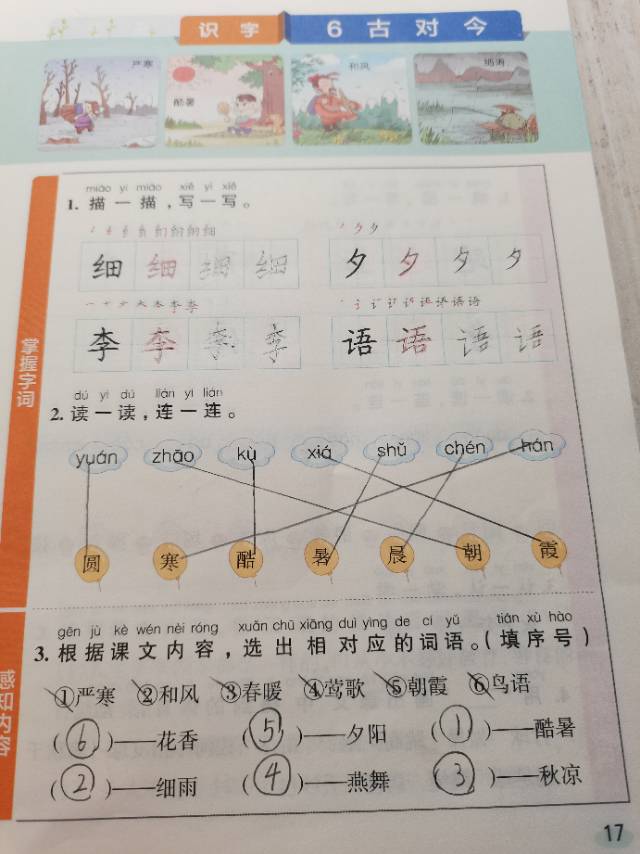 识字 6 古对今
严寒 酷暑 和风 细雨
miáo yi miáo xiě yi xiě
1. 描一描,写一写。
细 细 细 细 夕 夕 夕 夕
李 李 李 李 语 语 语 语
掌握字词
dú yi dú lián yi lián
2. 读一读,连一连。
yuán zhāo kù xiá shǔ chén hán
圆 寒 酷 暑 晨 朝 霞
gēn jù kè wén nèi róng xuǎn chū xiāng duì yìng de cí yǔ tián xù hào
3. 根据课文内容,选出相对应的词语。(填序号)
感知内容
①严寒 ②和风 ③春暖 ④莺歌 ⑤朝霞 ⑥鸟语
(⑥)——花香 (⑤)——夕阳 (①)——酷暑
(②)——细雨 (④)——燕舞 (③)——秋凉
17